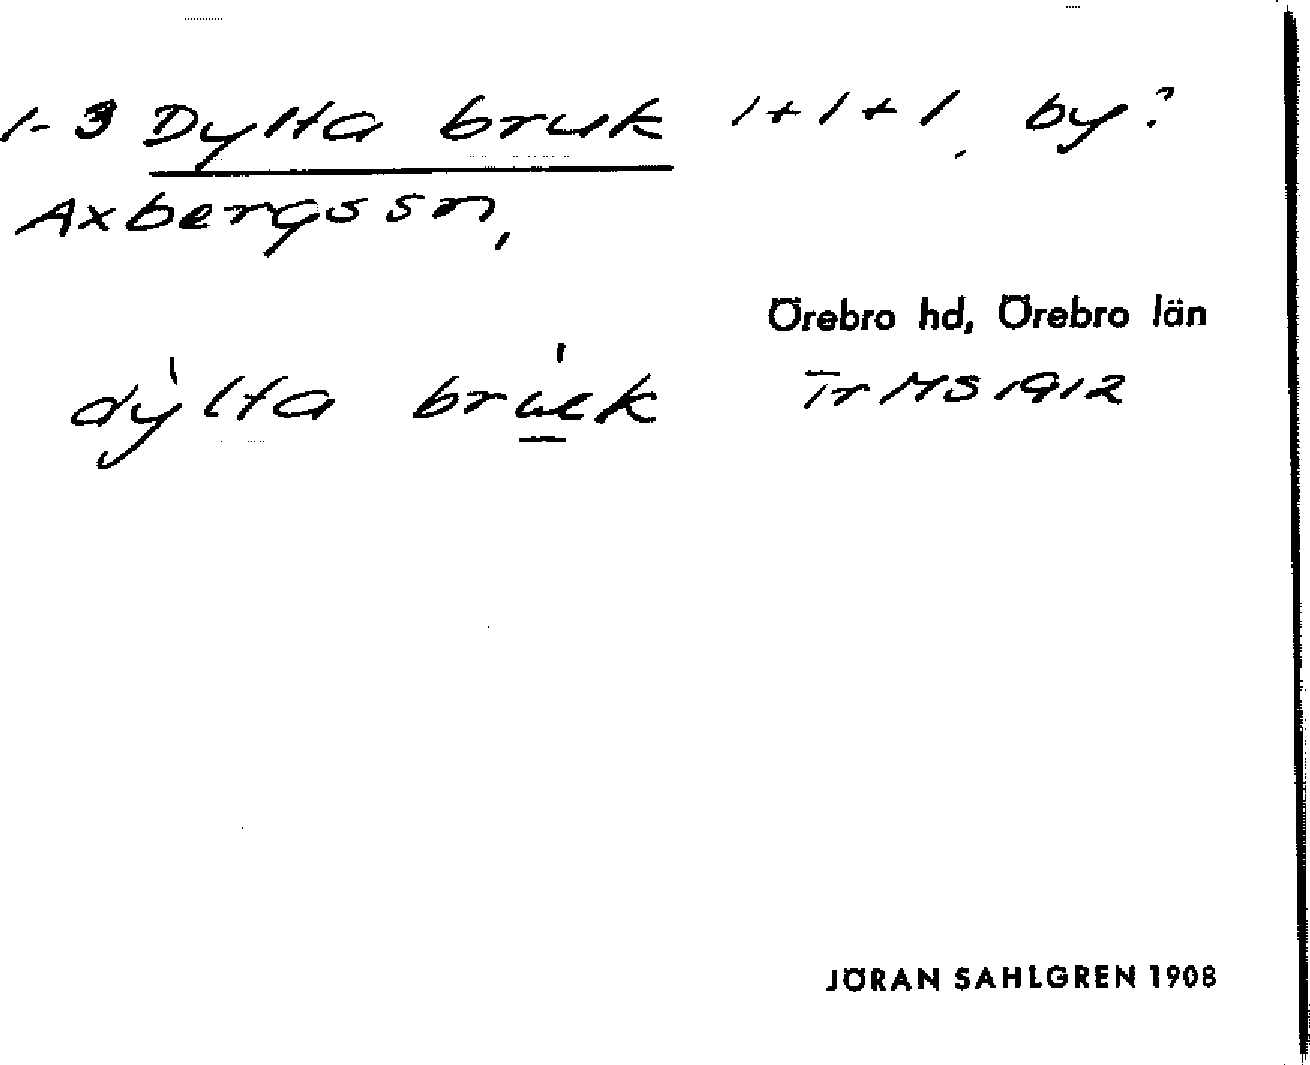 1-3 Dylta bruk 1+1+1, by?
Axbergs sn,
Örebro hd, Örebro län
dỳlta brúk Tr MS 1912
JÖRAN SAHLGREN 1908